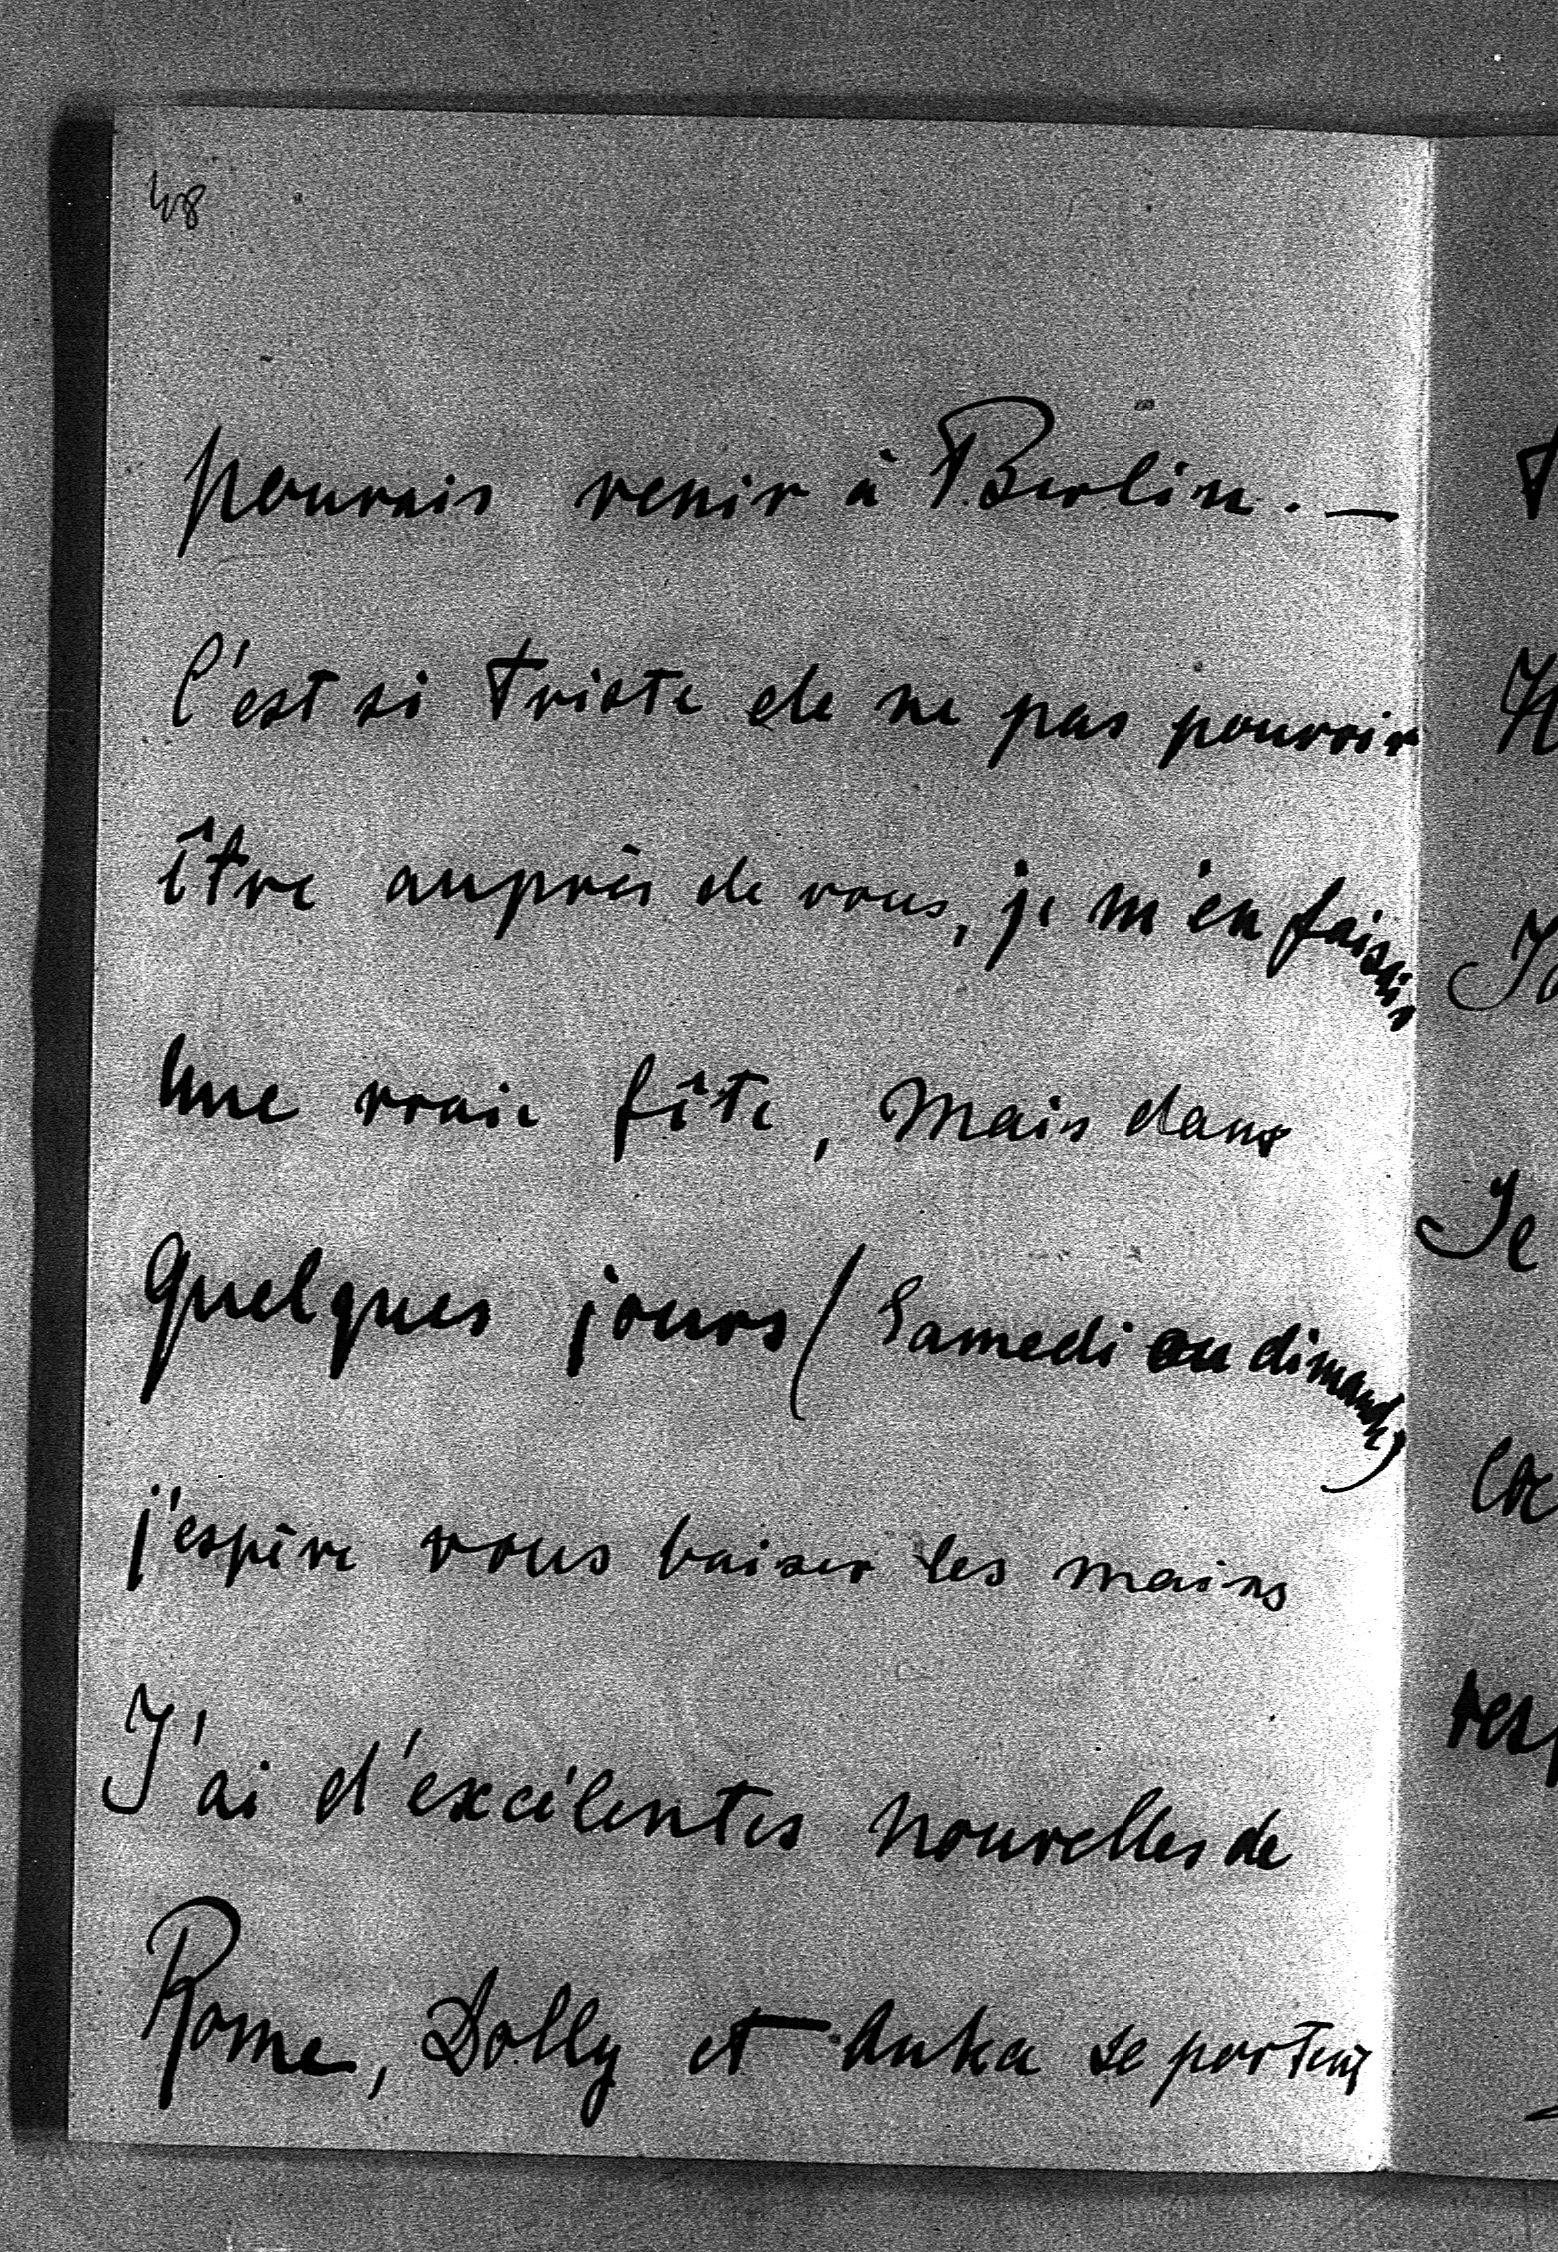 48
pouvais venir à Berlin. —
C'est si triste de ne pas pouvoir
être auprès de vous, je m'en faisais
une vraie fête, mais dans
quelques jours (Samedi ou dimanche)
j'espère vous baiser les mains
J'ai d'excélentes nouvelles de
Rome, Dolly et Anka se portent